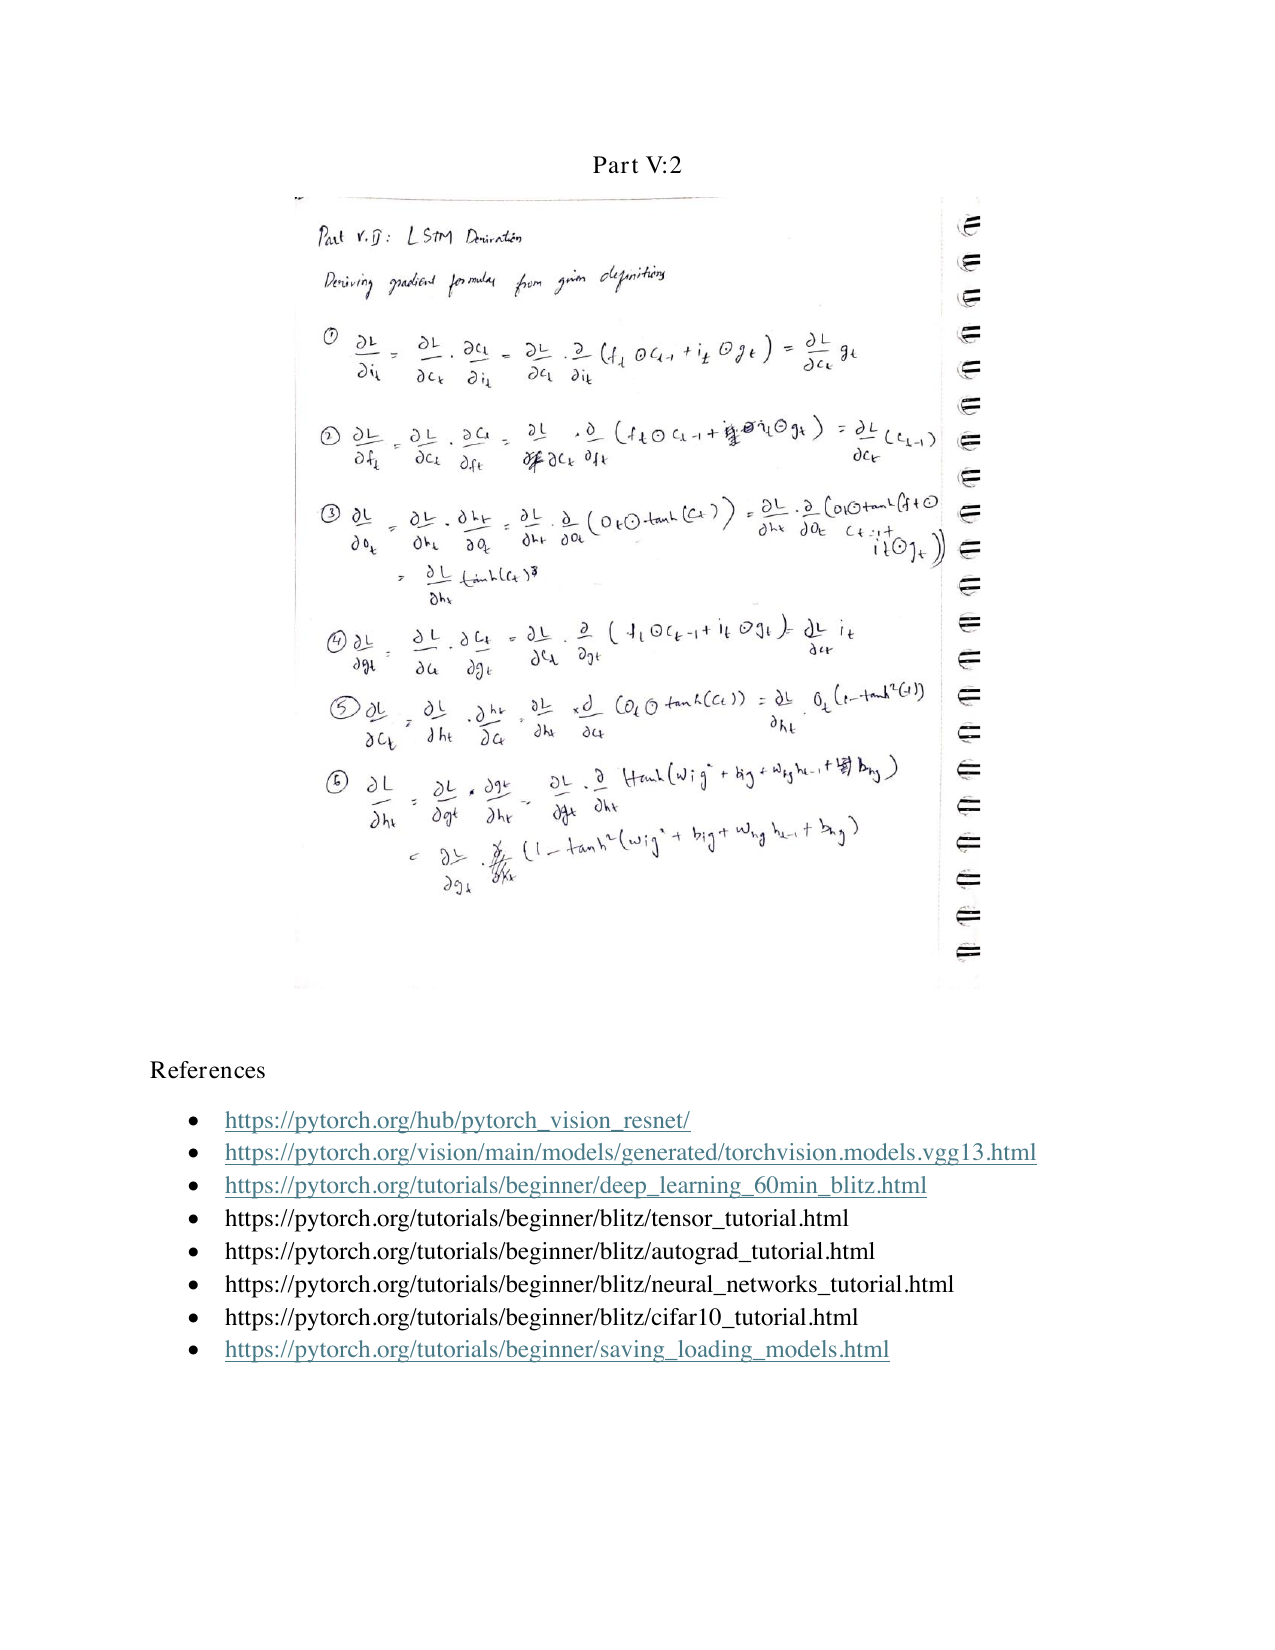 Part V:2
Part V.II: LSTM Derivation
Deriving gradient formulas from given definitions
① ∂L/∂i_t = ∂L/∂C_t . ∂C_t/∂i_t = ∂L/∂C_t . ∂/∂i_t (f_t ⊙ C_t-1 + i_t ⊙ g_t) = ∂L/∂C_t g_t
② ∂L/∂f_t = ∂L/∂C_t . ∂C_t/∂f_t = ∂L/∂C_t . ∂/∂f_t (f_t ⊙ C_t-1 + i_t ⊙ g_t) = ∂L/∂C_t (C_t-1)
③ ∂L/∂O_t = ∂L/∂h_t . ∂h_t/∂O_t = ∂L/∂h_t . ∂/∂O_t (O_t ⊙ tanh(C_t)) = ∂L/∂h_t . ∂/∂O_t (O_t ⊙ tanh(f_t ⊙
C_t-1 +
i_t ⊙ g_t))
= ∂L/∂h_t tanh(C_t)
④ ∂L/∂g_t = ∂L/∂C_t . ∂C_t/∂g_t = ∂L/∂C_t . ∂/∂g_t (f_t ⊙ C_t-1 + i_t ⊙ g_t) = ∂L/∂C_t i_t
⑤ ∂L/∂C_t = ∂L/∂h_t . ∂h_t/∂C_t = ∂L/∂h_t × ∂/∂C_t (O_t ⊙ tanh(C_t)) = ∂L/∂h_t . O_t (1-tanh²(C_t))
⑥ ∂L/∂h_t = ∂L/∂g_t . ∂g_t/∂h_t = ∂L/∂g_t . ∂/∂h_t tanh(W_ig + b_ig + W_hg h_t-1 + b_hg)
= ∂L/∂g_t . (1-tanh²(W_ig + b_ig + W_hg h_t-1 + b_hg)
References
• https://pytorch.org/hub/pytorch_vision_resnet/
• https://pytorch.org/vision/main/models/generated/torchvision.models.vgg13.html
• https://pytorch.org/tutorials/beginner/deep_learning_60min_blitz.html
• https://pytorch.org/tutorials/beginner/blitz/tensor_tutorial.html
• https://pytorch.org/tutorials/beginner/blitz/autograd_tutorial.html
• https://pytorch.org/tutorials/beginner/blitz/neural_networks_tutorial.html
• https://pytorch.org/tutorials/beginner/blitz/cifar10_tutorial.html
• https://pytorch.org/tutorials/beginner/saving_loading_models.html